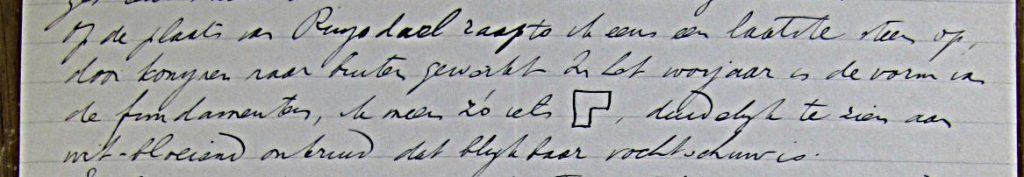 op de plaats van Ruysdael raapte ik eens een laatste steen op,
door konijnen naar buiten gewerkt. In het voorjaar is de vorm van
de fundamenten, ik meen zó iets , duidelijk te zien aan
wit-bloeiend onkruid dat blijkbaar vochtschuw is.